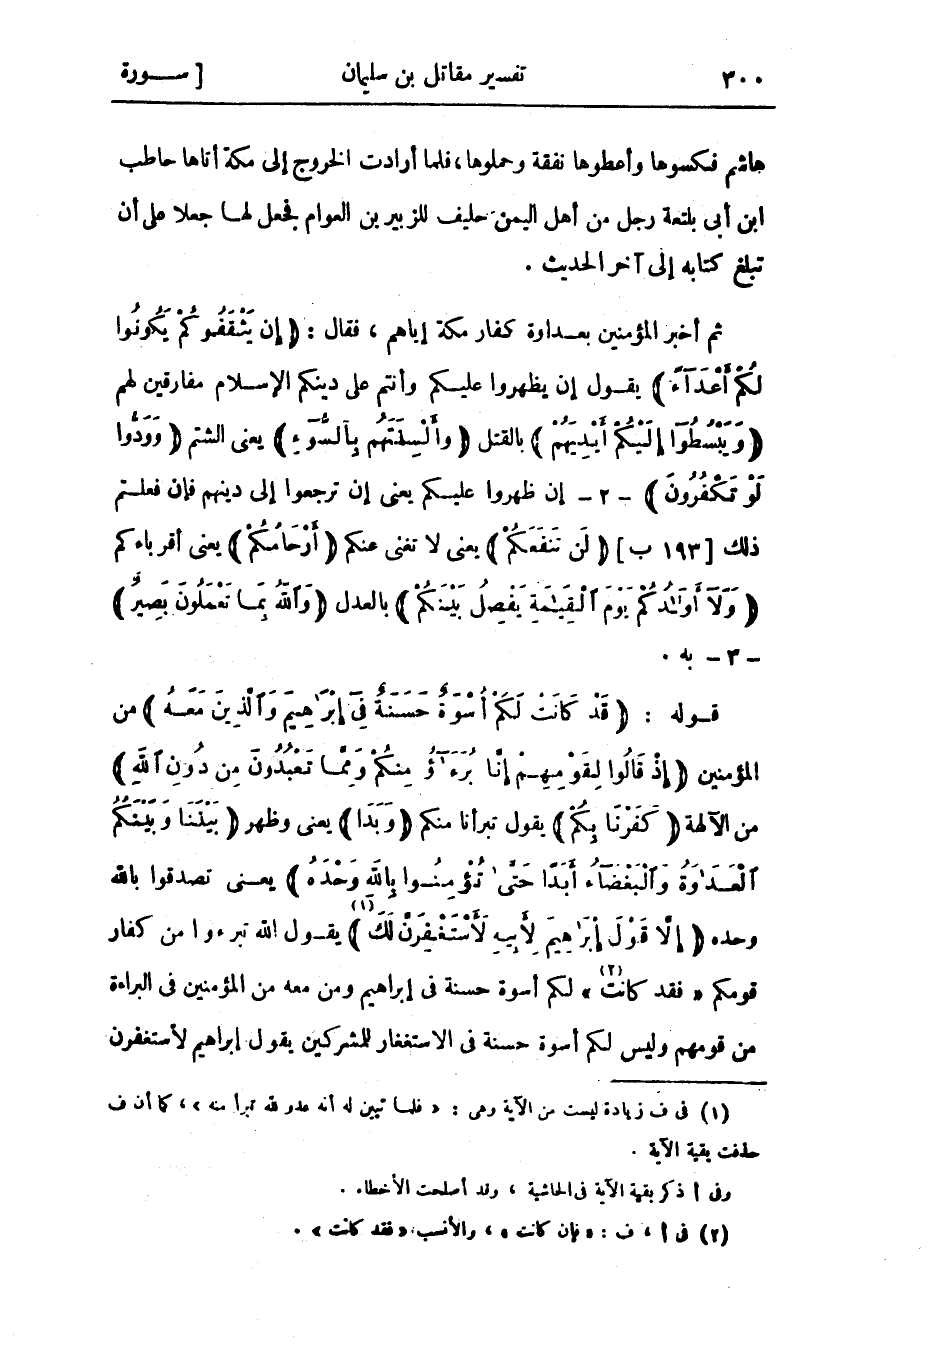 ٣٠٠ تفسير مقاتل بن سليمان [ ســـورة
هاشم فكسوها وأعطوها نفقة وحملوها ، فلما أرادت الخروج إلى مكة أتاها حاطب
ابن أبى بلتعة رجل من أهل اليمن حليف للزبير بن العوام فجعل لهـا جعلا على أن
تبلغ كتابه إلى آخر الحديث .
ثم أخبر المؤمنين بعـداوة كفار مكة إياهم ، فقال : ﴿ إِن يَثْقَفُوكُمْ يَكُونُوا
لَكُمْ أَعْدَآءً ﴾ يقـول إن يظهروا عليـكم وأنتم على دينكم الإسـلام مفارقين لهم
﴿ وَيَبْسُطُوٓا إِلَيْكُمْ أَيْدِيَهُمْ ﴾ بالقتل ﴿ وأَلْسِنَتَهُم بِٱلسُّوٓءِ ﴾ يعنى الشتم ﴿ وَوَدُّوا
لَوْ تَكْفُرُونَ ﴾ - ٢ - إن ظهروا عليـكم يعنى إن ترجعوا إلى دينهم فإن فعلـتم
ذلك [ ١٩٣ ب ] ﴿ لَن تَنفَعَكُمْ ﴾ يعنى لا تغنى عنكم ﴿ أَرْحَامُكُمْ ﴾ يعنى أقرباءكم
﴿ وَلَآ أَوْلَـٰدُكُمْ يَوْمَ ٱلْقِيَـٰمَةِ يَفْصِلُ بَيْنَكُمْ ﴾ بالعدل ﴿ وَٱللَّهُ بِمَا تَعْمَلُونَ بَصِيرٌ ﴾
- ٣ - به .
قـوله : ﴿ قَدْ كَانَتْ لَكُمْ أُسْوَةٌ حَسَنَةٌ فِىٓ إِبْرَٰهِيمَ وَٱلَّذِينَ مَعَـهُ ﴾ من
المؤمنين ﴿ إِذْ قَالُوا لِقَوْمِهِـمْ إِنَّا بُرَءَٰٓؤُ مِنكُمْ وَمِمَّـا تَعْبُدُونَ مِن دُونِ ٱللَّهِ ﴾
من الآلهة ﴿ كَفَرْنَا بِكُمْ ﴾ يقول تبرأنا منكم ﴿ وَبَدَا ﴾ يعنى وظهر ﴿ بَيْنَنَا وَبَيْنَكُمُ
ٱلْعَدَٰوَةُ وَٱلْبَغْضَآءُ أَبَدًا حَتَّىٰ تُؤْمِنُـوا بِٱللَّهِ وَحْدَهُ ﴾ يعـنى تصدقوا بالله
وحده ﴿ إِلَّا قَوْلَ إِبْرَٰهِيمَ لِأَبِيهِ لَأَسْتَغْفِرَنَّ لَكَ ﴾ (١) يقـول الله تبرءوا من كفار
قومكم « فقد كانت (٢) » لكم أسوة حسنة فى إبراهيم ومن معه من المؤمنين فى البراءة
من قومهم وليس لكم أسوة حسنة فى الاستغفار للمشركين يقول إبراهيم لأستغفرن
(١) فى ف زيادة ليست من الآية وهى : « فلمـا تبين له أنه عدو لله تبرأ منه » ، كما أن ف
حذفت بقية الآية .
وفى أ ذكر بقية الآية فى الحاشية ، وقد أصلحت الأخطاء .
(٢) فى أ ، ف : « فإن كانت » ، والأنسب « فقد كانت » .